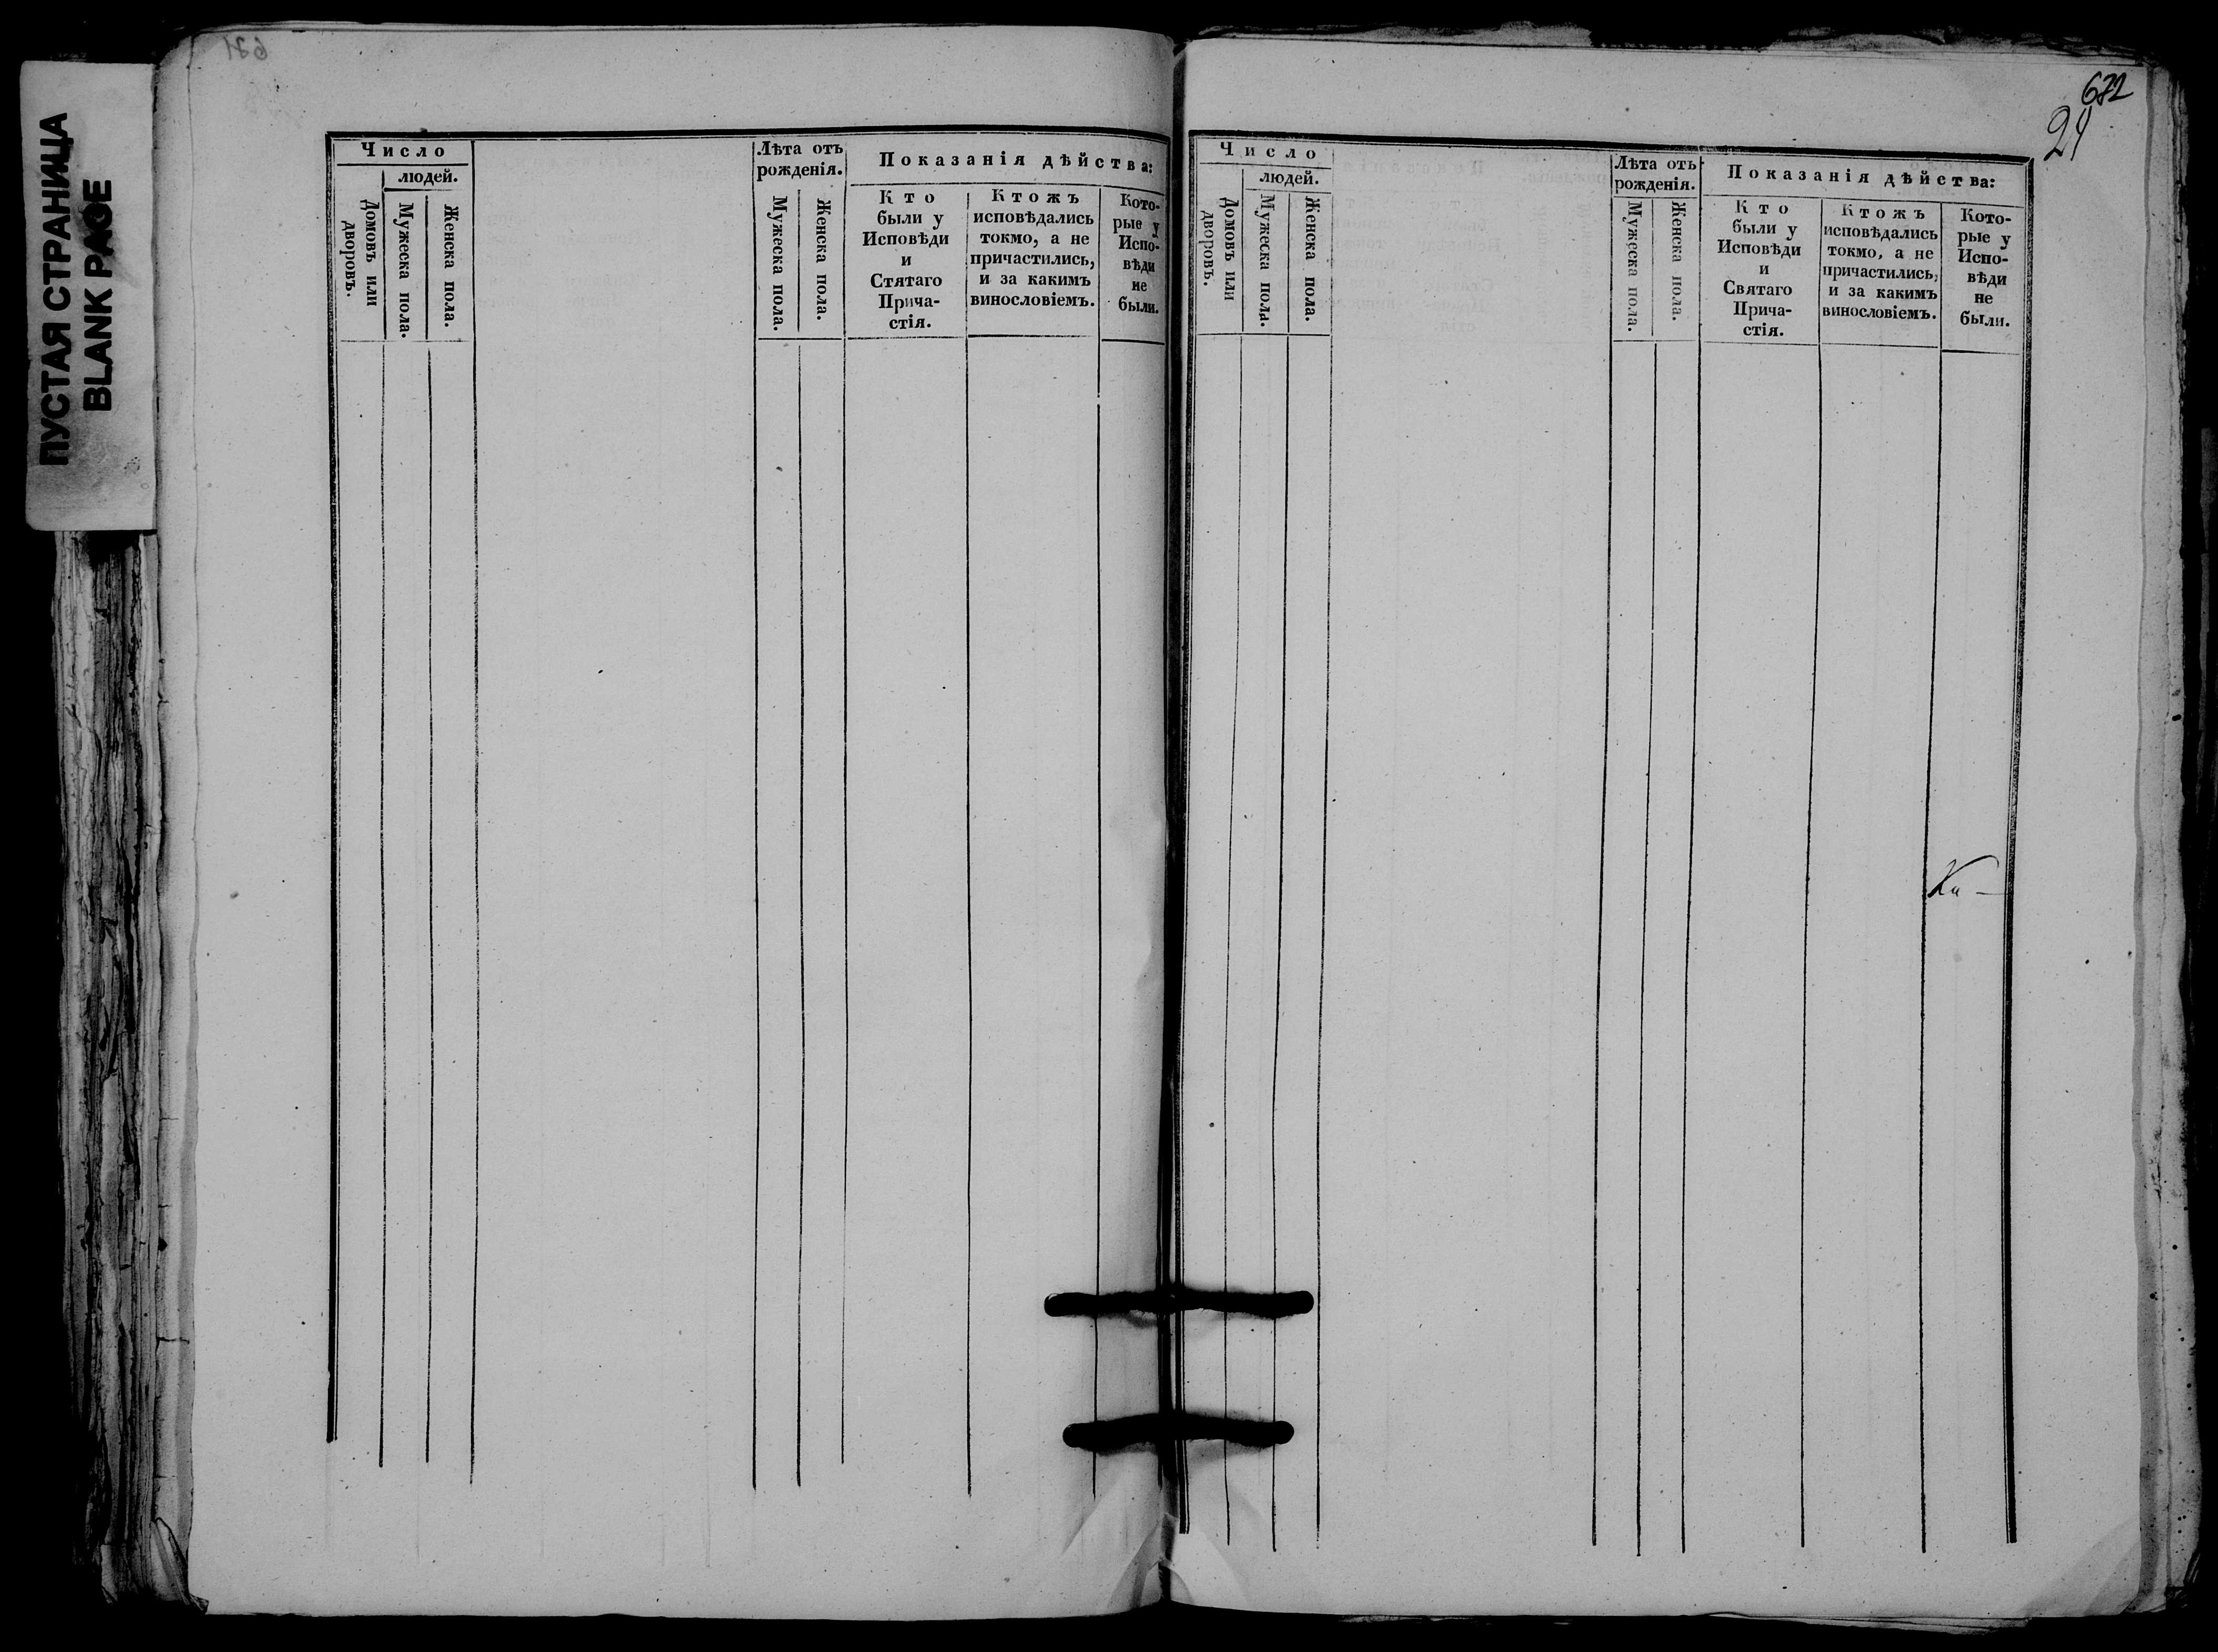 ПУСТАЯ СТРАНИЦА
BLANK PAGE
Число
людей.
Домовъ или
дворовъ.
Мужеска пола.
Женска пола.
Лѣта отъ
рожденія.
Мужеска пола.
Женска пола.
Показанія дѣйства:
Кто
были у
Исповѣди
и
Стятаго
Прича-
стія.
Ктожъ
исповѣдались
токмо, а не
причастились,
и за какимъ
винословіемъ.
Кото-
рые у
Испо-
вѣди
не
были.
672
Число
людей.
Домовъ или
дворовъ.
Мужеска пола.
Женска пола.
Лѣта отъ
рожденія.
Мужеска пола.
Женска пола.
Показанія дѣйства:
Кто
были у
Исповѣди
и
Святаго
Прича-
стія.
Ктожъ
исповѣдались
токмо, а не
причастились,
и за какимъ
винословіемъ.
Кото-
рые у
Испо-
вѣди
не
были.